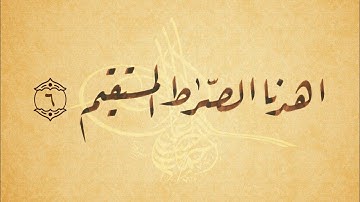 اهدنا الصّراط المستقيم ٦